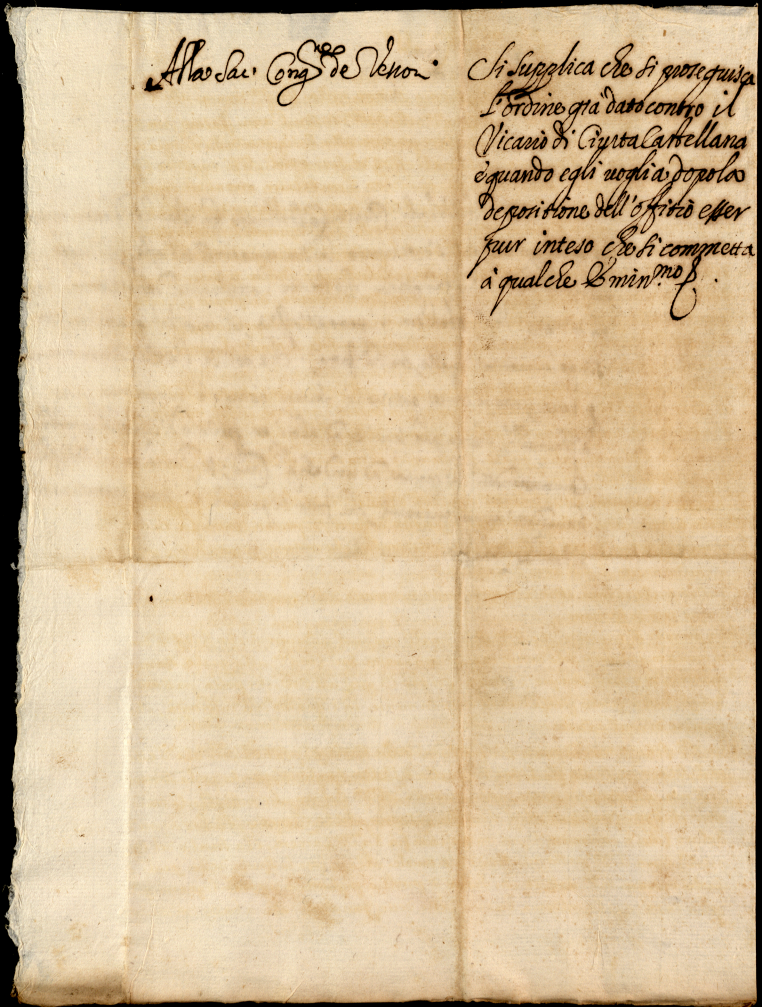 Alla Sac. Cong.ne de Vescou.
Si supplica che si proseguisca
l'ordine già dato contro il
Vicario di Ciuita Castellana
è quando egli uoglia dopo la
depositione dell'offitio esser
pur inteso che si commetta
à qualche Emin.mo